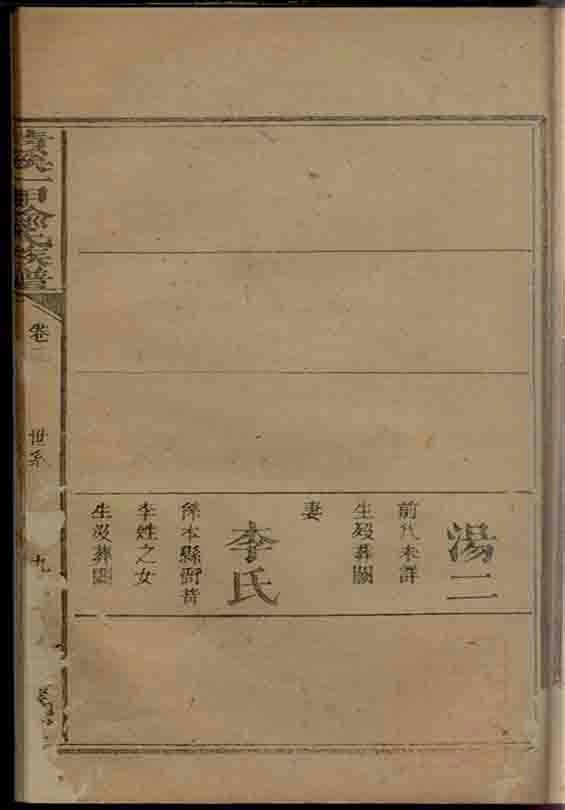 湯二
前代未詳
生歿葬闕
妻
李氏
係本縣
李姓之女
生歿葬闕
一甲
氏族譜
卷
世系
九